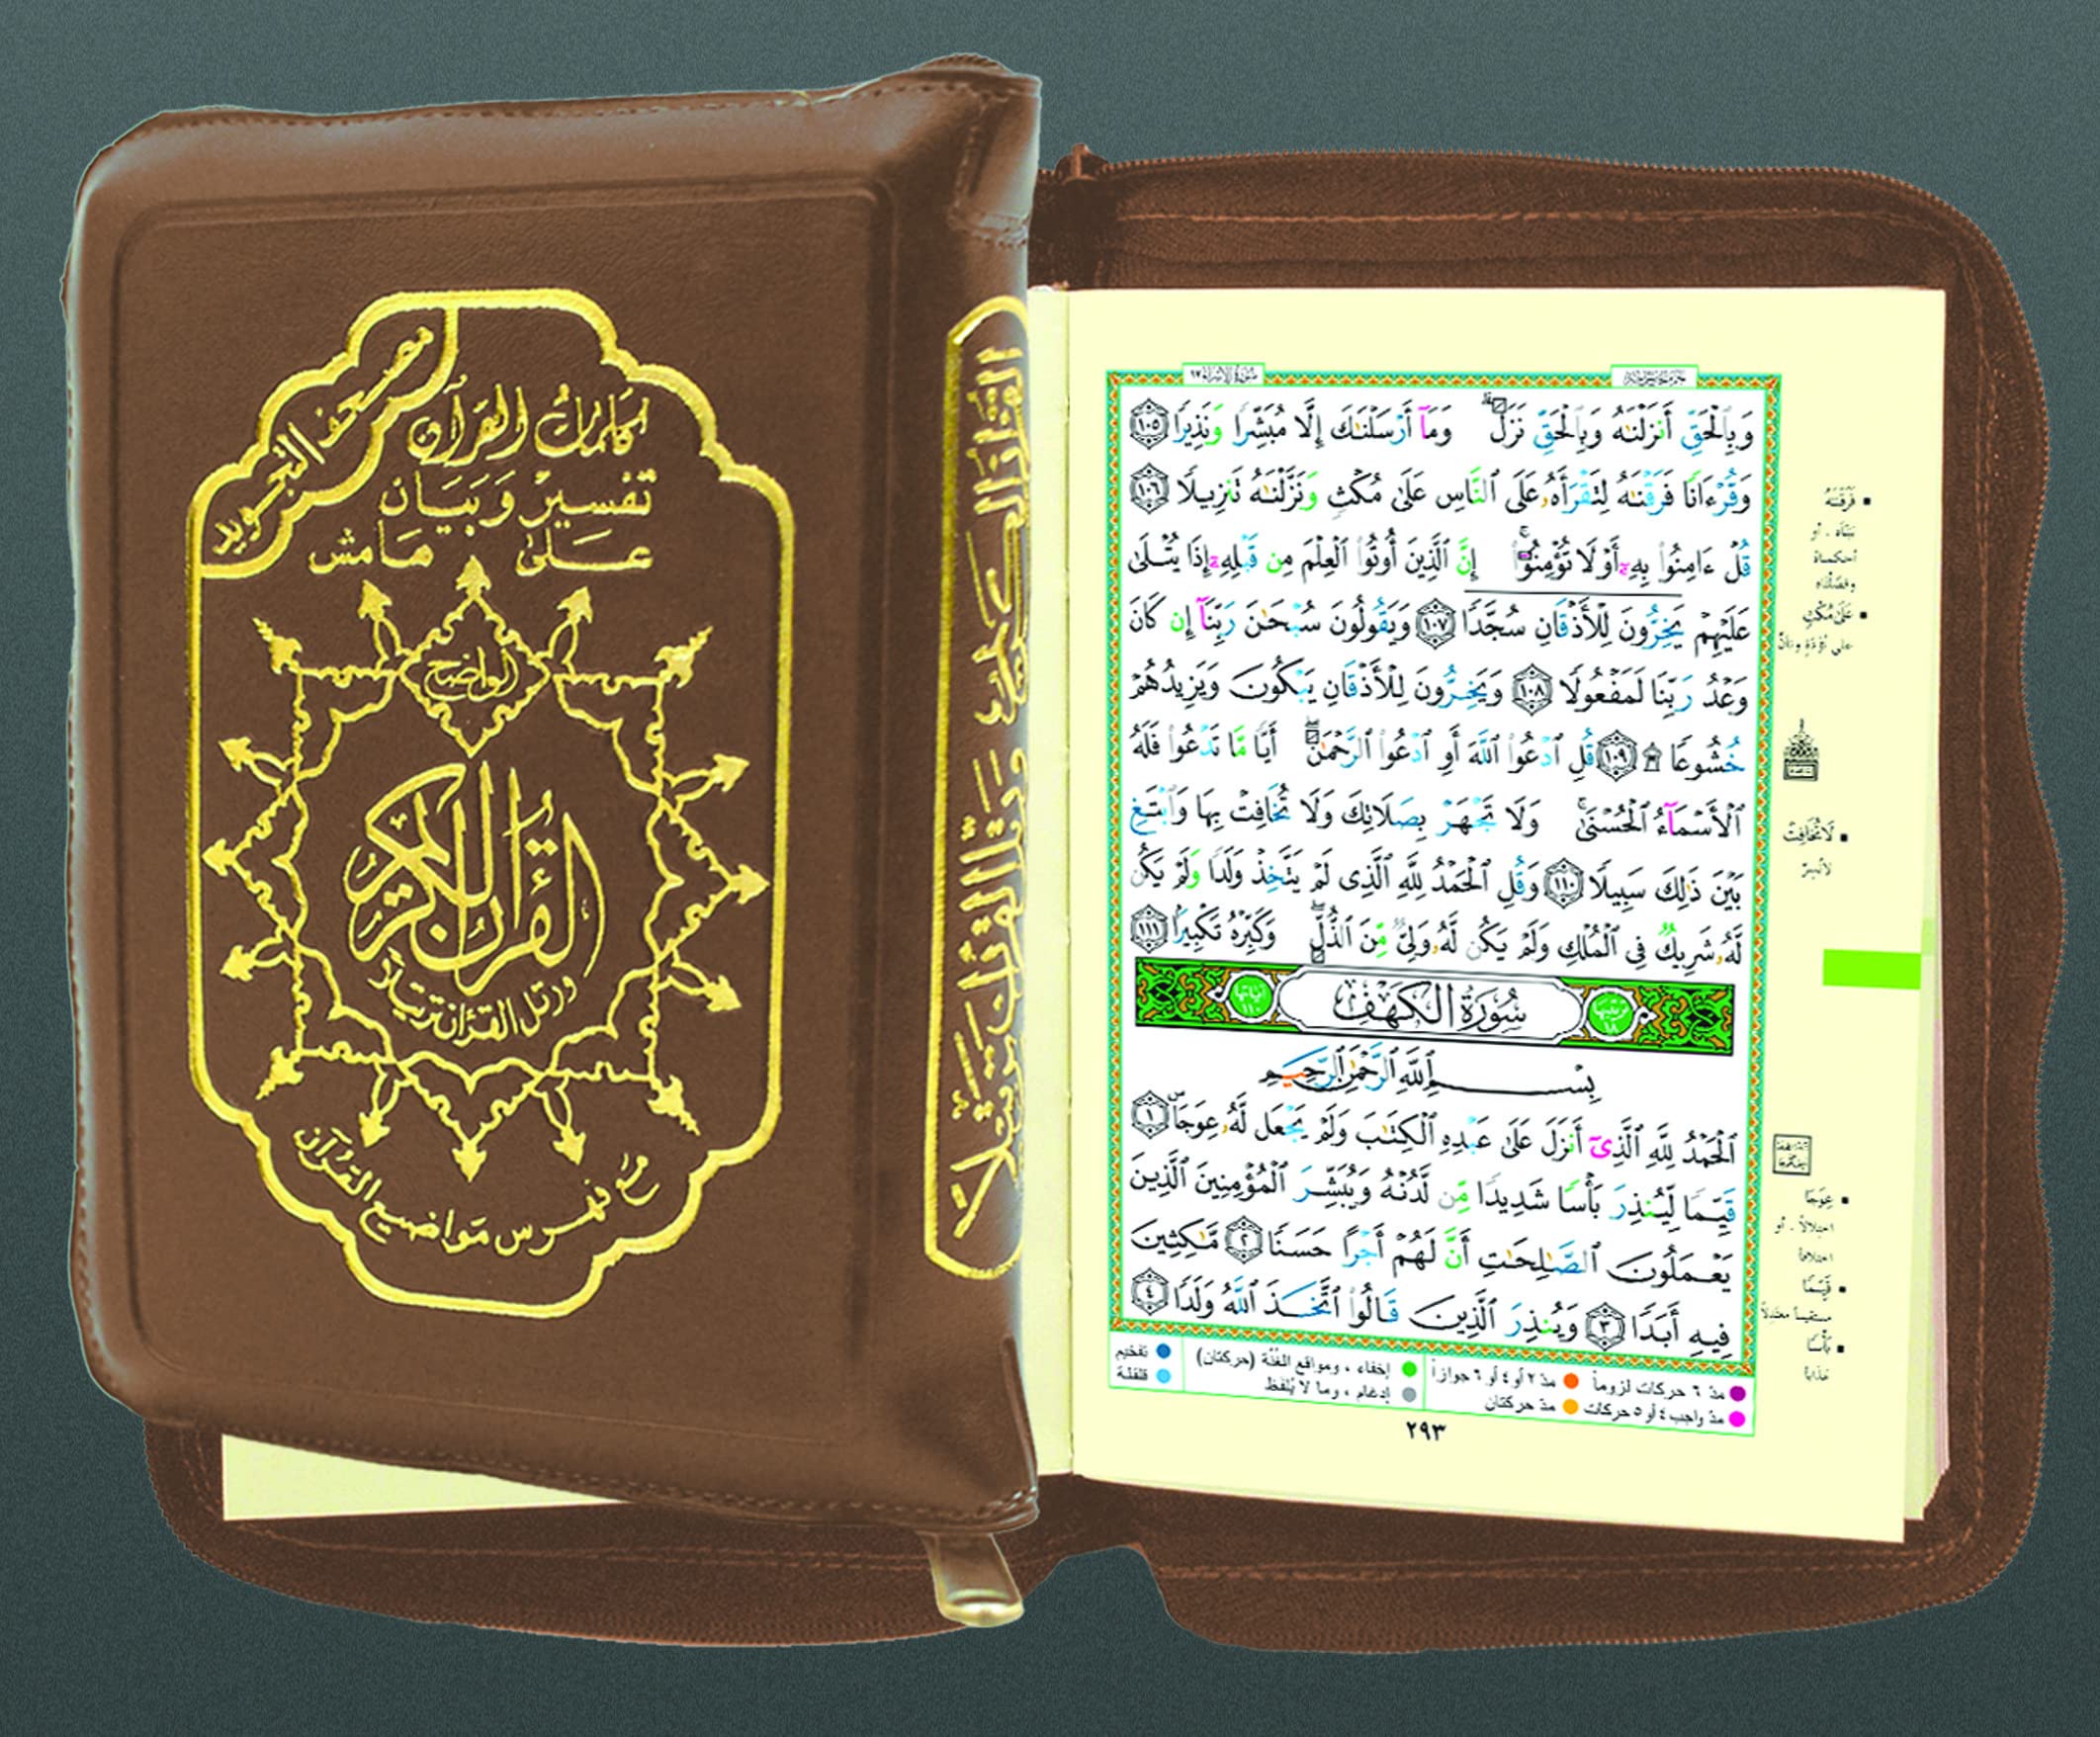 مصحف التجويد
لكلمات القرآن
تفسير وبيان
على هامش
الواضح
القرآن الكريم
ورتل القرآن ترتيلا
مع فهرس مواضيع القرآن
القرآن الكريم ورتل القرآن ترتيلا
سورة الإسراء ١٧
وَبِالْحَقِّ أَنزَلْنَٰهُ وَبِالْحَقِّ نَزَلَ وَمَآ أَرْسَلْنَٰكَ إِلَّا مُبَشِّرًا وَنَذِيرًا ١٠٥
وَقُرْءَانًا فَرَقْنَٰهُ لِتَقْرَأَهُۥ عَلَى ٱلنَّاسِ عَلَىٰ مُكْثٍ وَنَزَّلْنَٰهُ تَنزِيلًا ١٠٦
قُلْ ءَامِنُوا۟ بِهِۦٓ أَوْ لَا تُؤْمِنُوٓا۟ إِنَّ ٱلَّذِينَ أُوتُوا۟ ٱلْعِلْمَ مِن قَبْلِهِۦٓ إِذَا يُتْلَىٰ
عَلَيْهِمْ يَخِرُّونَ لِلْأَذْقَانِ سُجَّدًا ١٠٧ وَيَقُولُونَ سُبْحَٰنَ رَبِّنَآ إِن كَانَ
وَعْدُ رَبِّنَا لَمَفْعُولًا ١٠٨ وَيَخِرُّونَ لِلْأَذْقَانِ يَبْكُونَ وَيَزِيدُهُمْ
خُشُوعًا ۩ ١٠٩ قُلِ ٱدْعُوا۟ ٱللَّهَ أَوِ ٱدْعُوا۟ ٱلرَّحْمَٰنَ أَيًّا مَّا تَدْعُوا۟ فَلَهُ
ٱلْأَسْمَآءُ ٱلْحُسْنَىٰ وَلَا تَجْهَرْ بِصَلَاتِكَ وَلَا تُخَافِتْ بِهَا وَٱبْتَغِ
بَيْنَ ذَٰلِكَ سَبِيلًا ١١٠ وَقُلِ ٱلْحَمْدُ لِلَّهِ ٱلَّذِى لَمْ يَتَّخِذْ وَلَدًا وَلَمْ يَكُن
لَّهُۥ شَرِيكٌ فِى ٱلْمُلْكِ وَلَمْ يَكُن لَّهُۥ وَلِىٌّ مِّنَ ٱلذُّلِّ وَكَبِّرْهُ تَكْبِيرًا ١١١
ترتيبها ١٨ سُورَةُ الكَهْفِ آياتها ١١٠
بِسْمِ ٱللَّهِ ٱلرَّحْمَٰنِ ٱلرَّحِيمِ
ٱلْحَمْدُ لِلَّهِ ٱلَّذِىٓ أَنزَلَ عَلَىٰ عَبْدِهِ ٱلْكِتَٰبَ وَلَمْ يَجْعَل لَّهُۥ عِوَجَا ۜ ١
قَيِّمًا لِّيُنذِرَ بَأْسًا شَدِيدًا مِّن لَّدُنْهُ وَيُبَشِّرَ ٱلْمُؤْمِنِينَ ٱلَّذِينَ
يَعْمَلُونَ ٱلصَّٰلِحَٰتِ أَنَّ لَهُمْ أَجْرًا حَسَنًا ٢ مَّٰكِثِينَ
فِيهِ أَبَدًا ٣ وَيُنذِرَ ٱلَّذِينَ قَالُوا۟ ٱتَّخَذَ ٱللَّهُ وَلَدًا ٤
فَرَقْنَٰهُ
بيّناه . أو
أحكمناه
وفصّلناه
عَلَىٰ مُكْثٍ
على تُؤدَةٍ وتأنٍّ
لَا تُخَافِتْ
لا تُسِرّ
عِوَجَا
اختلالاً . أو
اختلافاً
قَيِّمًا
مستقيماً معتدلاً
بَأْسًا
عَذاباً
مدّ ٦ حركات لزوماً
مدّ ٢ أو ٤ أو ٦ جوازاً
مدّ واجب ٤ أو ٥ حركات
مدّ حركتان
إخفاء ، ومواقع الغُنّة (حركتان)
إدغام ، وما لا يُلفظ
تفخيم
قلقلة
٢٩٣